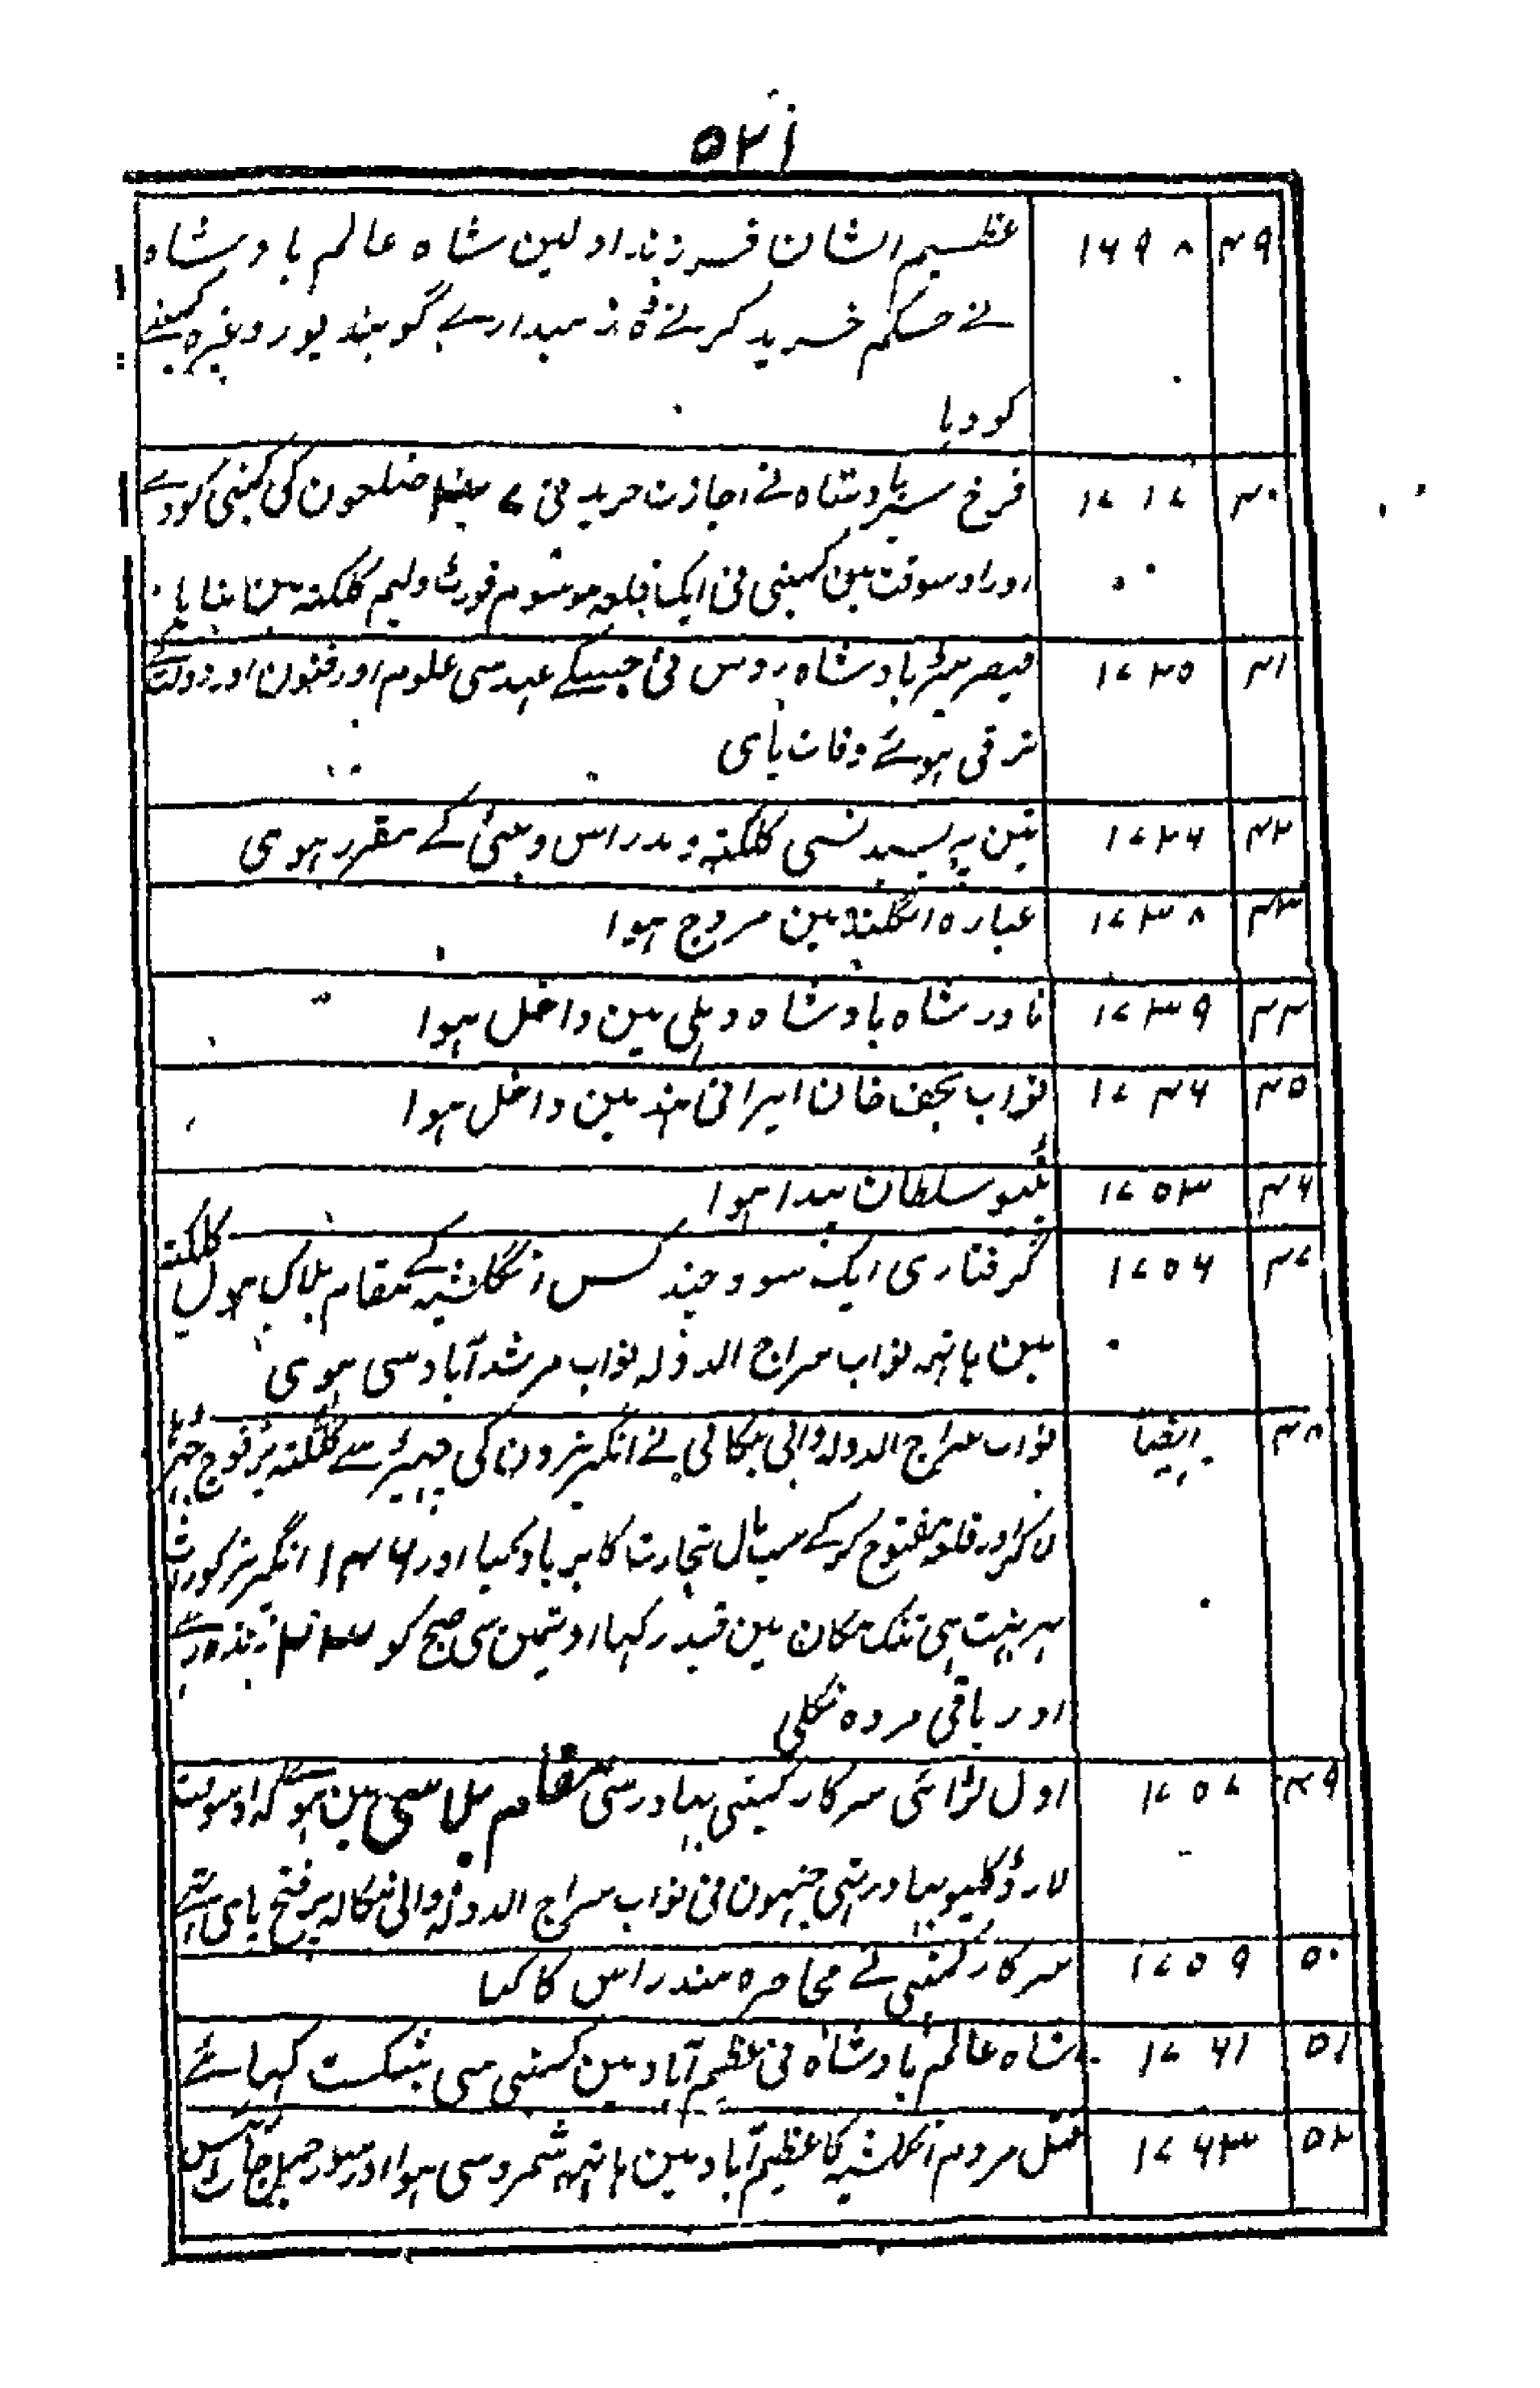 ۵۲۱
۳۹ ۱۶۹۸ عظیم الشان فرزند اولین شاہ عالم بادشاہ
نے حکم خرید کرنے زمیندارے گوبند پور وغیرہ کمپنے
کو دیا
۴۰ ۱۷۱۷ فرخ سیر بادشاہ نے اجازت خرید نی ضلعون کی کمپنی کو دے
اور اوسوقت مین کمپنی نی ایک قلعہ موسوم فورٹ ولیم کلکتہ مین بنایا
۴۱ ۱۷۲۵ قیصر پیٹر بادشاہ روس نی جسکے عہد سی علوم اور فنون اور دولت کے
ترقی ہوئے وفات پای
۴۲ ۱۷۲۶ تین پریسیڈنسی کلکتہ و مدراس و بمبئی کے مقرر ہوی
۴۳ ۱۷۳۸ غبارہ انگلینڈ مین مروج ہوا
۴۴ ۱۷۳۹ نادر شاہ بادشاہ دہلی مین داخل ہوا
۴۵ ۱۷۴۶ نواب نجف خان ایرانی ہند مین داخل ہوا
۴۶ ۱۷۵۳ ٹیپو سلطان پیدا ہوا
۴۷ ۱۷۵۶ گرفتاری ایک سو و چند کس انگلشیہ کے مقام بلاک ہول کلکتہ
مین ہاتہہ نواب سراج الدولہ نواب مرشد آباد سی ہوی
۴۸ ایضاً نواب سراج الدولہ والی بنگالی نے انگریزون کی چہیڑ سے کلکتہ پر فوج چڑہا
لاکر اور قلعہ مفتوح کرکے سب مال تجارت کا برباد کیا اور ۱۴۶ انگریز کو رات
بہر نہت ہی تنگ مکان مین قید رکہا اوتمین سی صبح کو ۲۳ زندہ رہے
اور باقی مردہ نکلی
۴۹ ۱۷۵۷ اول لڑائی سرکار کمپنی بہادر سی مقام پلاسی مین ہوئے کہ اوسوقت
لارڈ کلیو بہادر تہی جنہون نی نواب سراج الدولہ والی بنگالہ پر فتح پای تہے
۵۰ ۱۷۵۹ سرکار کمپنی نے محاصرہ مندراس کا کیا
۵۱ ۱۷۶۱ شاہ عالم بادشاہ نی عظیم آباد مین کمپنی سی شکست کہائے
۵۲ ۱۷۶۳ قتل مردم انگلشیہ کا عظیم آباد مین ہاتہہ شمرو سی ہوا اور سورجمل جاٹ